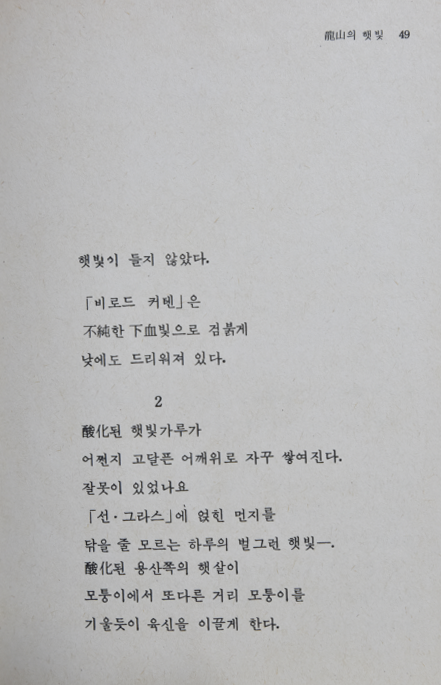 龍山의 햇빛 49
햇빛이 들지 않았다.
「비로드 커텐」은
不純한 下血빛으로 검붉게
낮에도 드리워져 있다.
2
酸化된 햇빛가루가
어쩐지 고달픈 어깨위로 자꾸 쌓여진다.
잘못이 있었나요
「선·그라스」에 얹힌 먼지를
닦을 줄 모르는 하루의 벌그런 햇빛—.
酸化된 용산쪽의 햇살이
모퉁이에서 또다른 거리 모퉁이를
기울듯이 육신을 이끌게 한다.